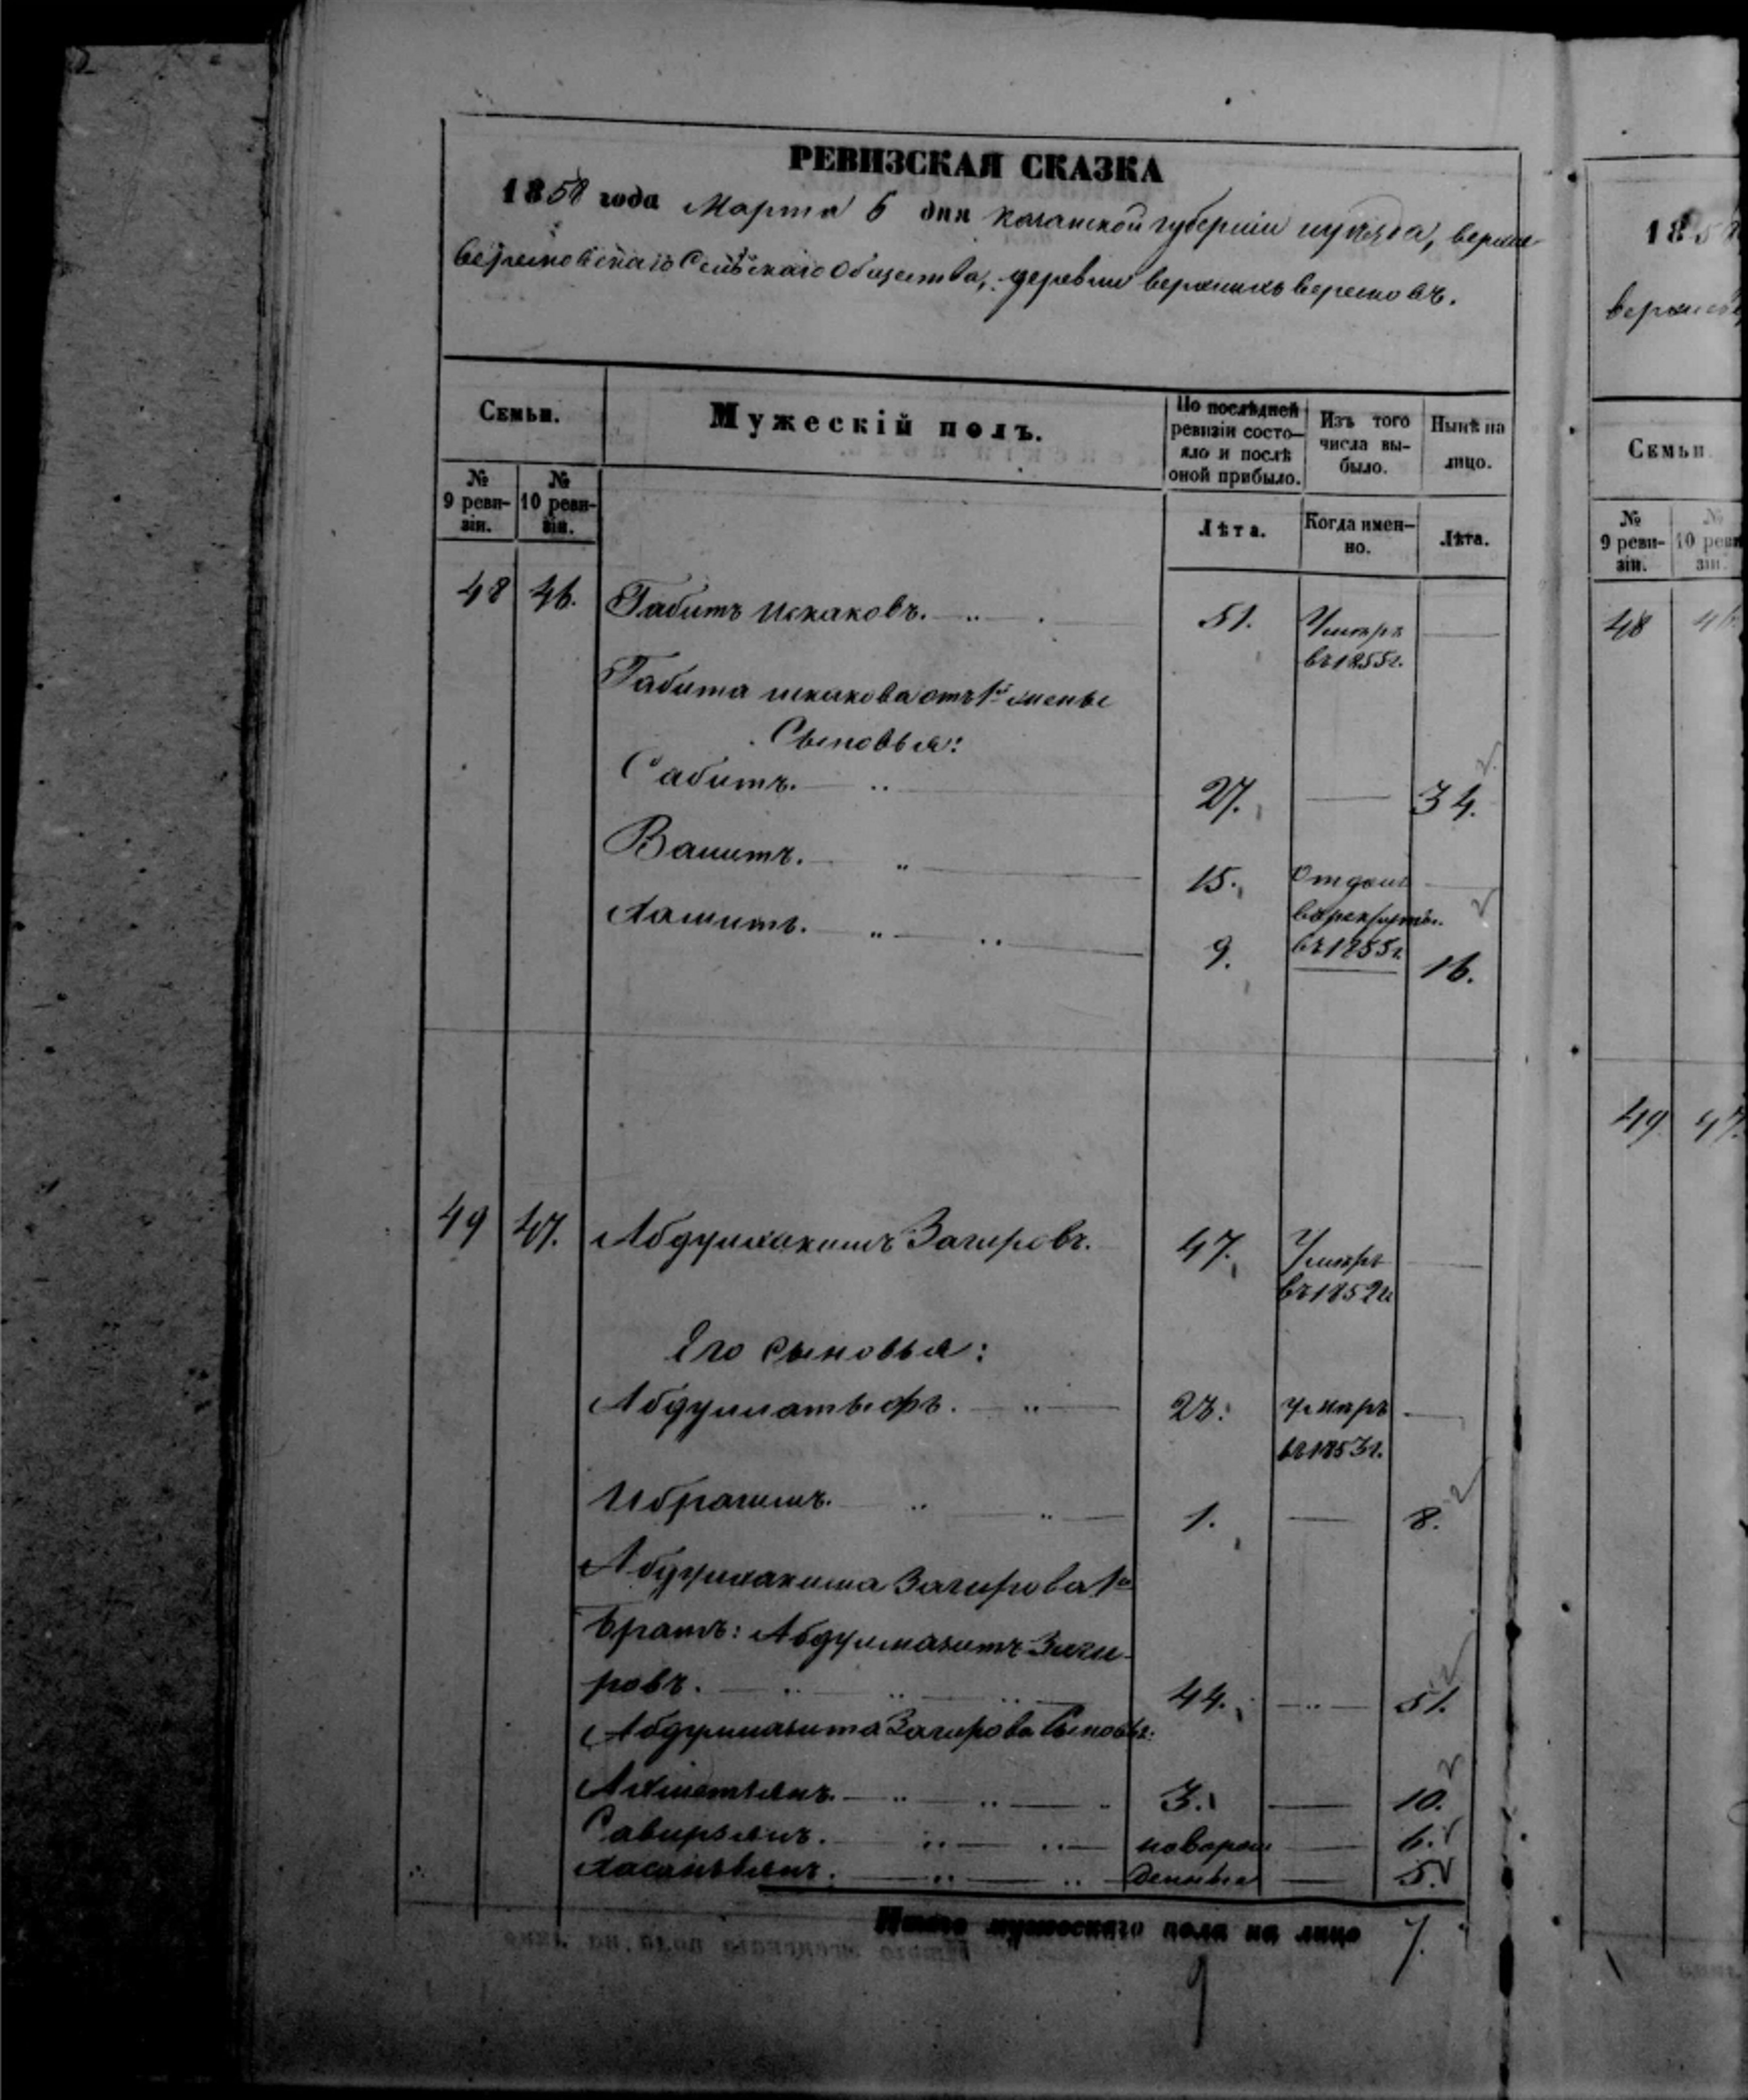 РЕВИЗСКАЯ СКАЗКА
1858 года Марта 6 дня Казанской губерніи и уѣзда, верхне-
Сельскаго Общества, деревни верхнихъ
Семьи.
Мужескій полъ.
По послѣдней ревизіи состо-
яло и послѣ
оной прибыло.
Изъ того
числа вы-
было.
Нынѣ на
лицо.
№
9 реви-
зіи.
№
10 реви-
зіи.
Лѣта.
Когда имен-
но.
Лѣта.
48 46. Габитъ Искаковъ. 51. Умеръ
въ 1855г.
Габита искакова отъ 1й жены
Сыновья:
Сабитъ. 27. 34.
Вашитъ. 15. Отданъ
въ рекруты
въ 1855г.
Хамитъ. 9. 16.
49 47. Абдулхакимъ Загировъ. 47. Умеръ
въ 1852г.
Его сыновья:
Абдуллатыфъ. 28. умеръ
въ 1853г.
Ибрагимъ. 1. 8.
Абдулхакима Загирова 1й
братъ: Абдулмазитъ Заги-
ровъ. 44. 51.
Абдулмазита Загирова Сыновья:
Ахметзянъ. 3. 10.
Сабирзянъ. новорож 6.
Хасанзянъ. денные 5.
Итого мужескаго пола на лицо 7.
185
Семьи
№
9 реви-
зіи.
№
10 реви
зіи.
48 46.
49 47.